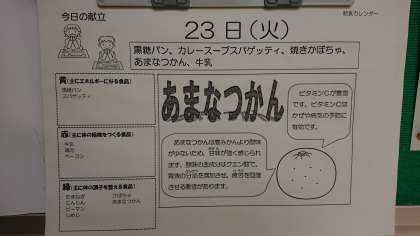 今日の献立
給食カレンダー
23日(火)
黒糖パン、カレースープスパゲッティ、焼きかぼちゃ、
あまなつかん、牛乳
黄(主にエネルギーになる食品)
黒糖パン
スパゲティ
赤(主に体の組織をつくる食品)
牛乳
鶏肉
ベーコン
緑(主に体の調子を整える食品)
たまねぎ かぼちゃ
にんじん あまなつかん
ピーマン
しめじ
あまなつかん
ビタミンCが豊富
です。ビタミンCは
かぜや病気の予防に
有効です。
あまなつかんは夏みかんより酸味
が少ないため、甘味が強く感じられ
ます。酸味の主成分はクエン酸で、
胃液の分泌を増加させ、疲労を回復
させる働きがあります。